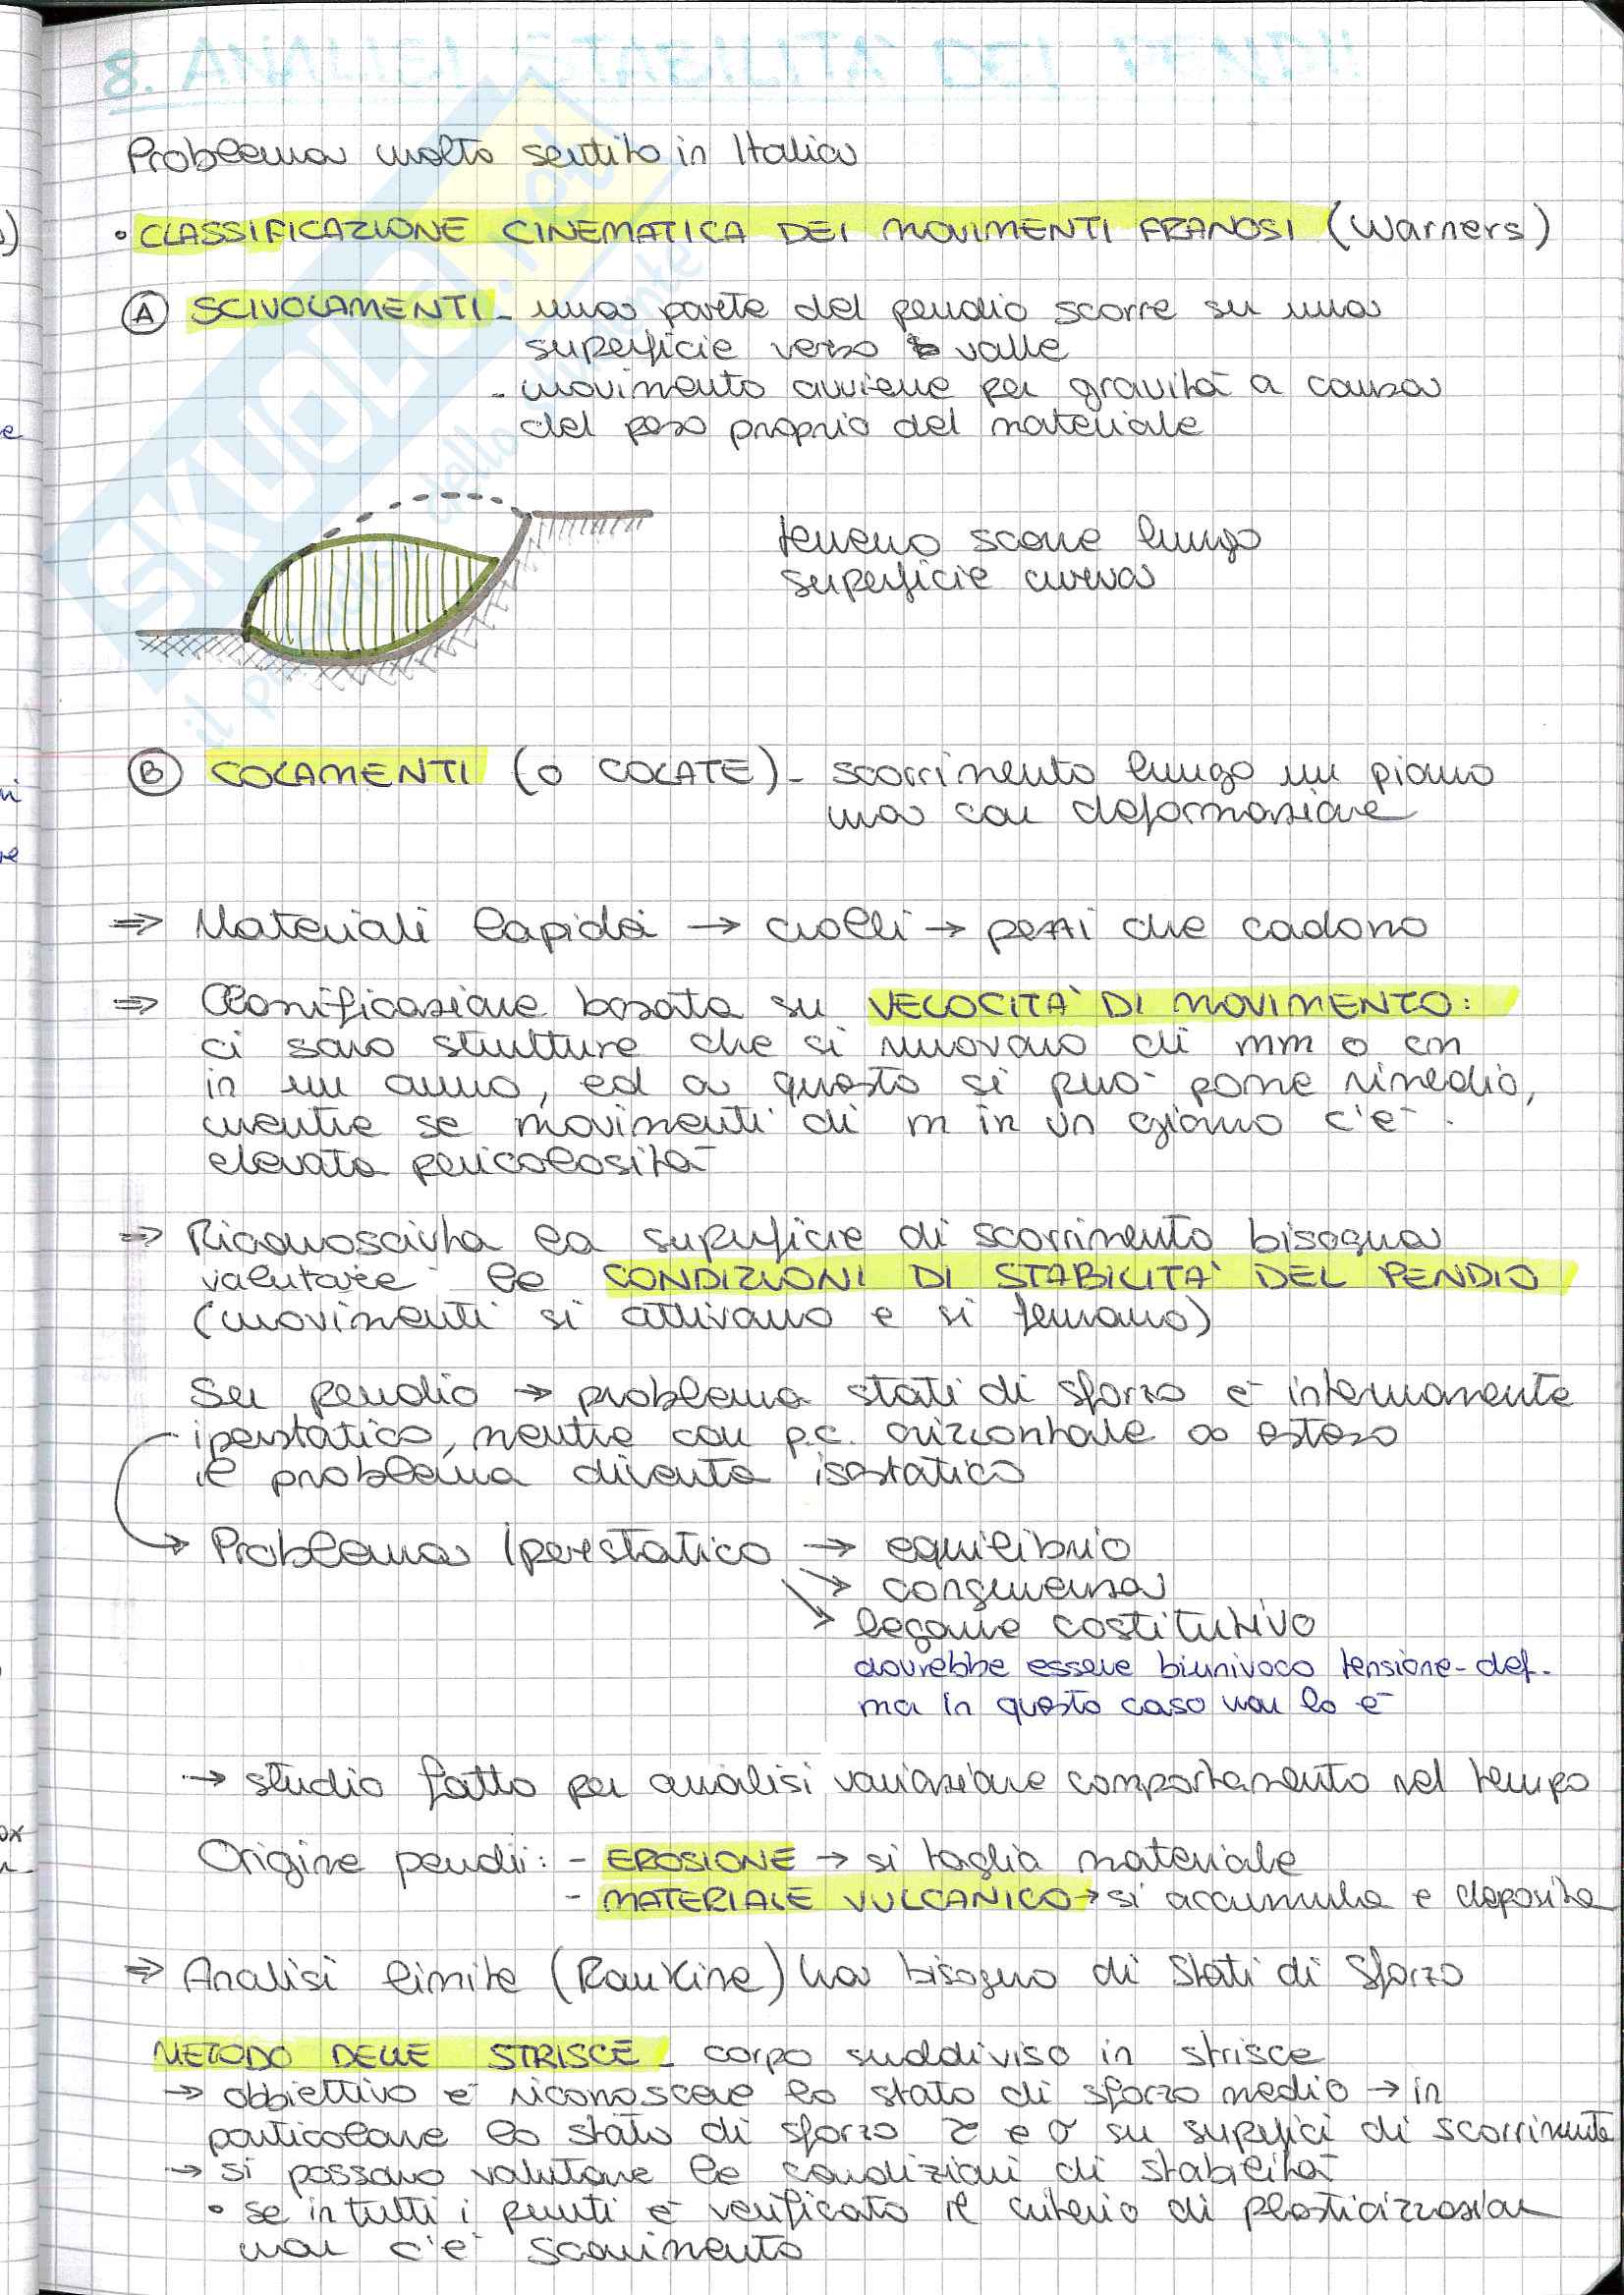 8. ANALISI STABILITÀ DEI PENDII
Problema molto sentito in Italia
• CLASSIFICAZIONE CINEMATICA DEI MOVIMENTI FRANOSI (Warners)
A SCIVOLAMENTI - una parete del pendio scorre su una
superficie verso valle
- movimento avviene per gravità a causa
del peso proprio del materiale
terreno scorre lungo
superficie curva
B COLAMENTI (o COLATE) - scorrimento lungo un piano
ma con deformazione
⇒ Materiali lapidei → crolli → pezzi che cadono
⇒ Classificazione basata su VELOCITÀ DI MOVIMENTO:
ci sono strutture che si muovono di mm o cm
in un anno, ed a questo si può porre rimedio,
mentre se movimenti di m in un giorno c'è
elevata pericolosità
⇒ Riconosciuta la superficie di scorrimento bisogna
valutare le CONDIZIONI DI STABILITÀ DEL PENDIO
(movimenti si attivano e si fermano)
Su pendio → problema stati di sforzo è internamente
iperstatico, mentre con p.c. orizzontale ∞ esteso
il problema diventa isostatico
→ Problema Iperstatico → equilibrio
→ congruenza
→ legame costitutivo
dovrebbe essere biunivoco tensione-def.
ma in questo caso non lo è
→ studio fatto per analisi variazione comportamento nel tempo
Origine pendii: - EROSIONE → si taglia materiale
- MATERIALE VULCANICO → si accumula e deposita
⇒ Analisi limite (Rankine) ha bisogno di Stati di Sforzo
METODO DELLE STRISCE - corpo suddiviso in strisce
→ obbiettivo è riconoscere lo stato di sforzo medio → in
particolare lo stato di sforzo τ e σ su superfici di scorrimento
→ si possono valutare le condizioni di stabilità
• se in tutti i punti è verificato il criterio di plasticizzazione
non c'è scorrimento
SKUOLA.net